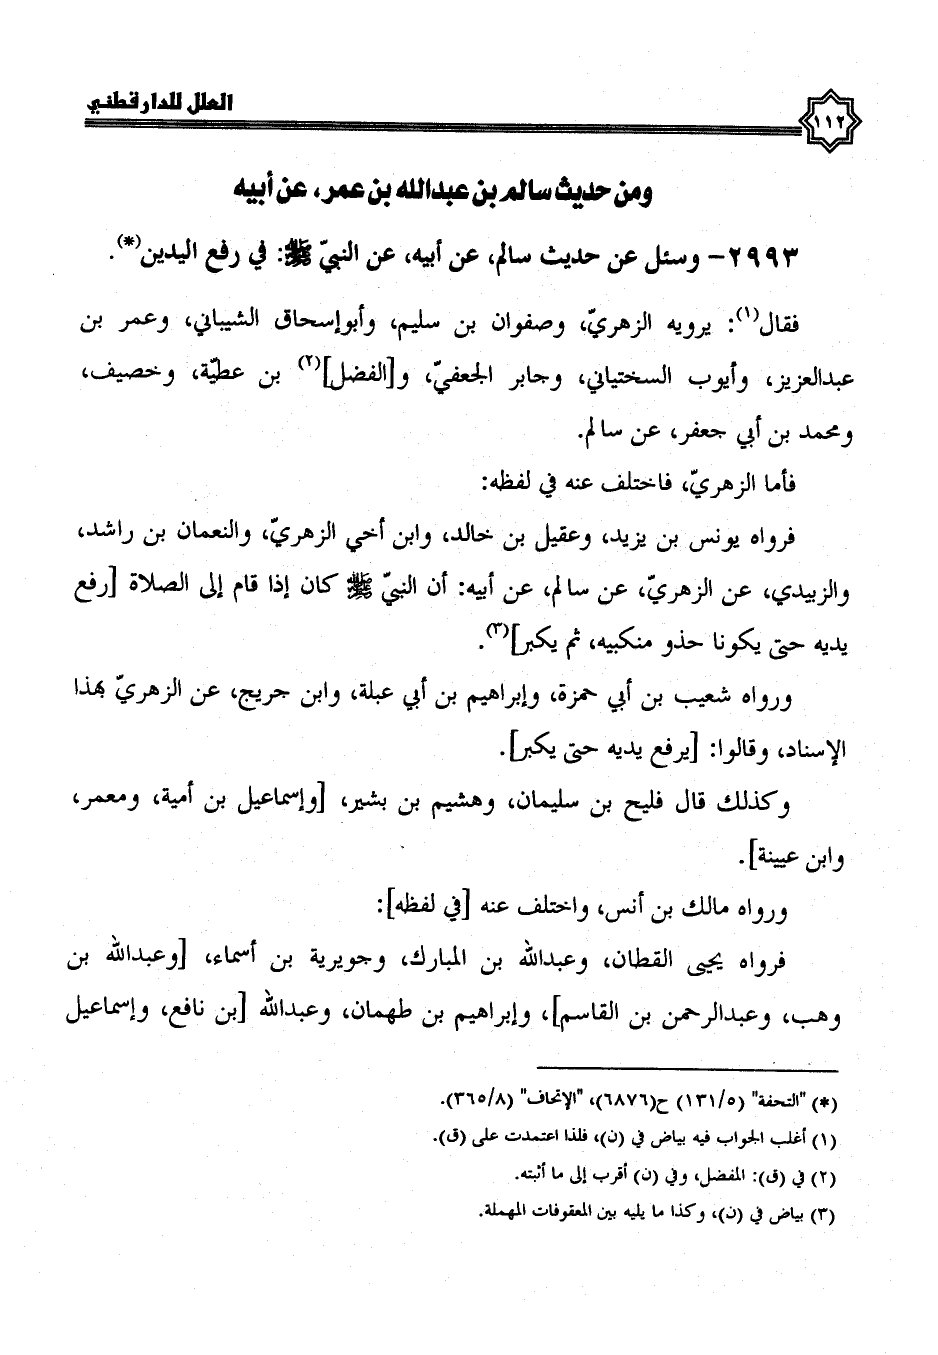 العلل للدارقطني
١١٢
ومن حديث سالم بن عبدالله بن عمر، عن أبيه
٢٩٩٣- وسئل عن حديث سالم، عن أبيه، عن النبيّ ﷺ: في رفع اليدين(*).
فقال(١): يرويه الزهريّ، وصفوان بن سليم، وأبوإسحاق الشيباني، وعمر بن
عبدالعزيز، وأيوب السختياني، وجابر الجعفيّ، و[الفضل](٢) بن عطيّة، وخصيف،
ومحمد بن أبي جعفر، عن سالم.
فأما الزهريّ، فاختلف عنه في لفظه:
فرواه يونس بن يزيد، وعقيل بن خالد، وابن أخي الزهريّ، والنعمان بن راشد،
والزبيدي، عن الزهريّ، عن سالم، عن أبيه: أن النبيّ ﷺ كان إذا قام إلى الصلاة [رفع
يديه حتى يكونا حذو منكبيه، ثم يكبر](٣).
ورواه شعيب بن أبي حمزة، وإبراهيم بن أبي عبلة، وابن جريج، عن الزهريّ بهذا
الإسناد، وقالوا: [يرفع يديه حتى يكبر].
وكذلك قال فليح بن سليمان، وهشيم بن بشير، [وإسماعيل بن أمية، ومعمر،
وابن عيينة].
ورواه مالك بن أنس، واختلف عنه [في لفظه]:
فرواه يحيى القطان، وعبدالله بن المبارك، وجويرية بن أسماء، [وعبدالله بن
وهب، وعبدالرحمن بن القاسم]، وإبراهيم بن طهمان، وعبدالله [بن نافع، وإسماعيل
(*) "التحفة" (١٣١/٥) ح(٦٨٧٦)، "الإتحاف" (٣٦٥/٨).
(١) أغلب الجواب فيه بياض في (ن)، فلذا اعتمدت على (ق).
(٢) في (ق): المفضل، وفي (ن) أقرب إلى ما أثبته.
(٣) بياض في (ن)، وكذا ما يليه بين المعقوفات المهملة.